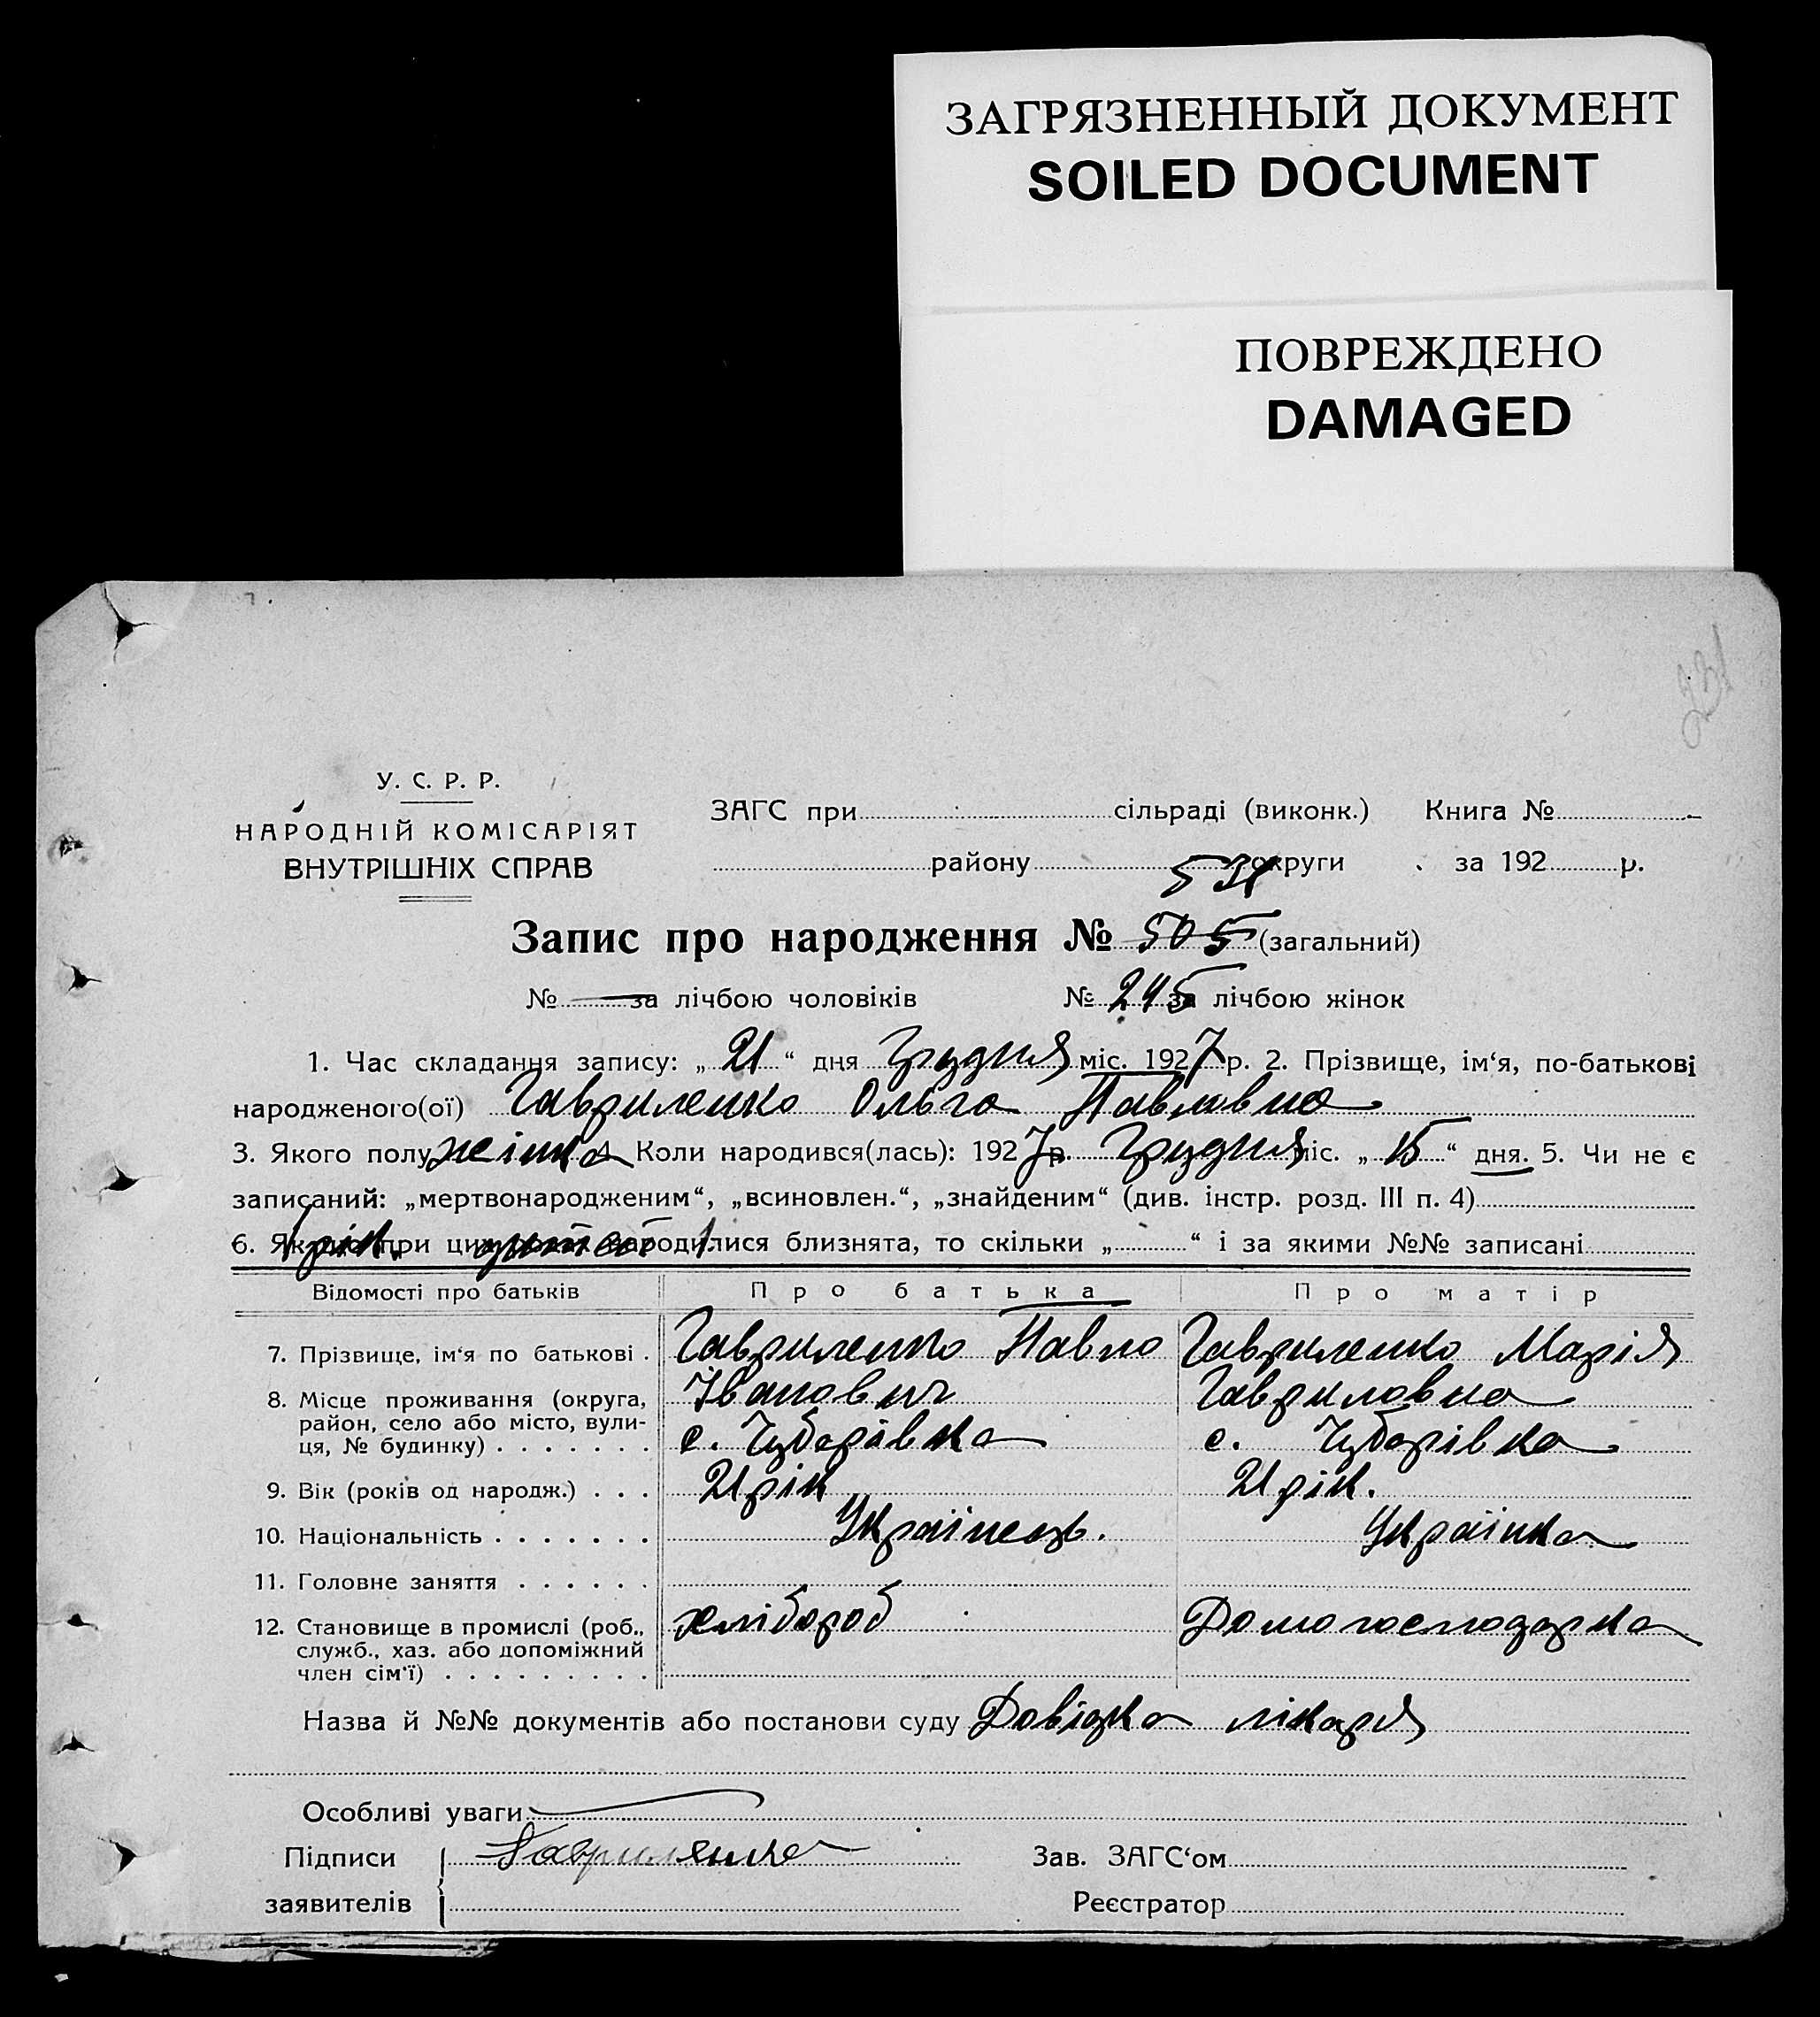 ЗАГРЯЗНЕННЫЙ ДОКУМЕНТ
SOILED DOCUMENT
ПОВРЕЖДЕНО
DAMAGED
231
У. С. Р. Р.
НАРОДНІЙ КОМІСАРІЯТ
ВНУТРІШНІХ СПРАВ
ЗАГС при сільраді (виконк.) Книга №
району округи за 192 р.
531
Запис про народження № 505 (загальний)
№ — за лічбою чоловіків № 245 за лічбою жінок
1. Час складання запису: „ 21 “ дня Грудня міс. 1927 р. 2. Прізвище, ім‘я, по-батькові
народженого(ої) Гавриленко Ольга Павловна
3. Якого полу жінка 4. Коли народився(лась): 1927 р. Грудня міс. „ 15 “ дня. 5. Чи не є
записаний: „мертвонародженим“, „всиновлен.“, „знайденим“ (див. інстр. розд. III п. 4)
6. Якщо при цих народилися близнята, то скільки „ “ і за якими №№ записані
1 рік. дитей 1
Відомості про батьків Про батька Про матір
7. Прізвище, ім‘я по батькові . Гавриленко Павло Гавриленко Марія
Іванович Гавриловна
8. Місце проживання (округа, район, село або місто, вули-
ця, № будинку) . . . . . . . с. Чубарівка с. Чубарівка
9. Вік (років од народж.) . . . 21 рік 21 рік.
10. Національність . . . . . . . Українець. Українка
11. Головне заняття . . . . . .
12. Становище в промислі (роб., хлібороб Домогосподарка
служб., хаз. або допоміжний
член сім‘ї) . . . . . . . . .
Назва й №№ документів або постанови суду Довідка лікаря
Особливі уваги
Підписи Гавриленко Зав. ЗАГС‘ом
заявителів Реєстратор